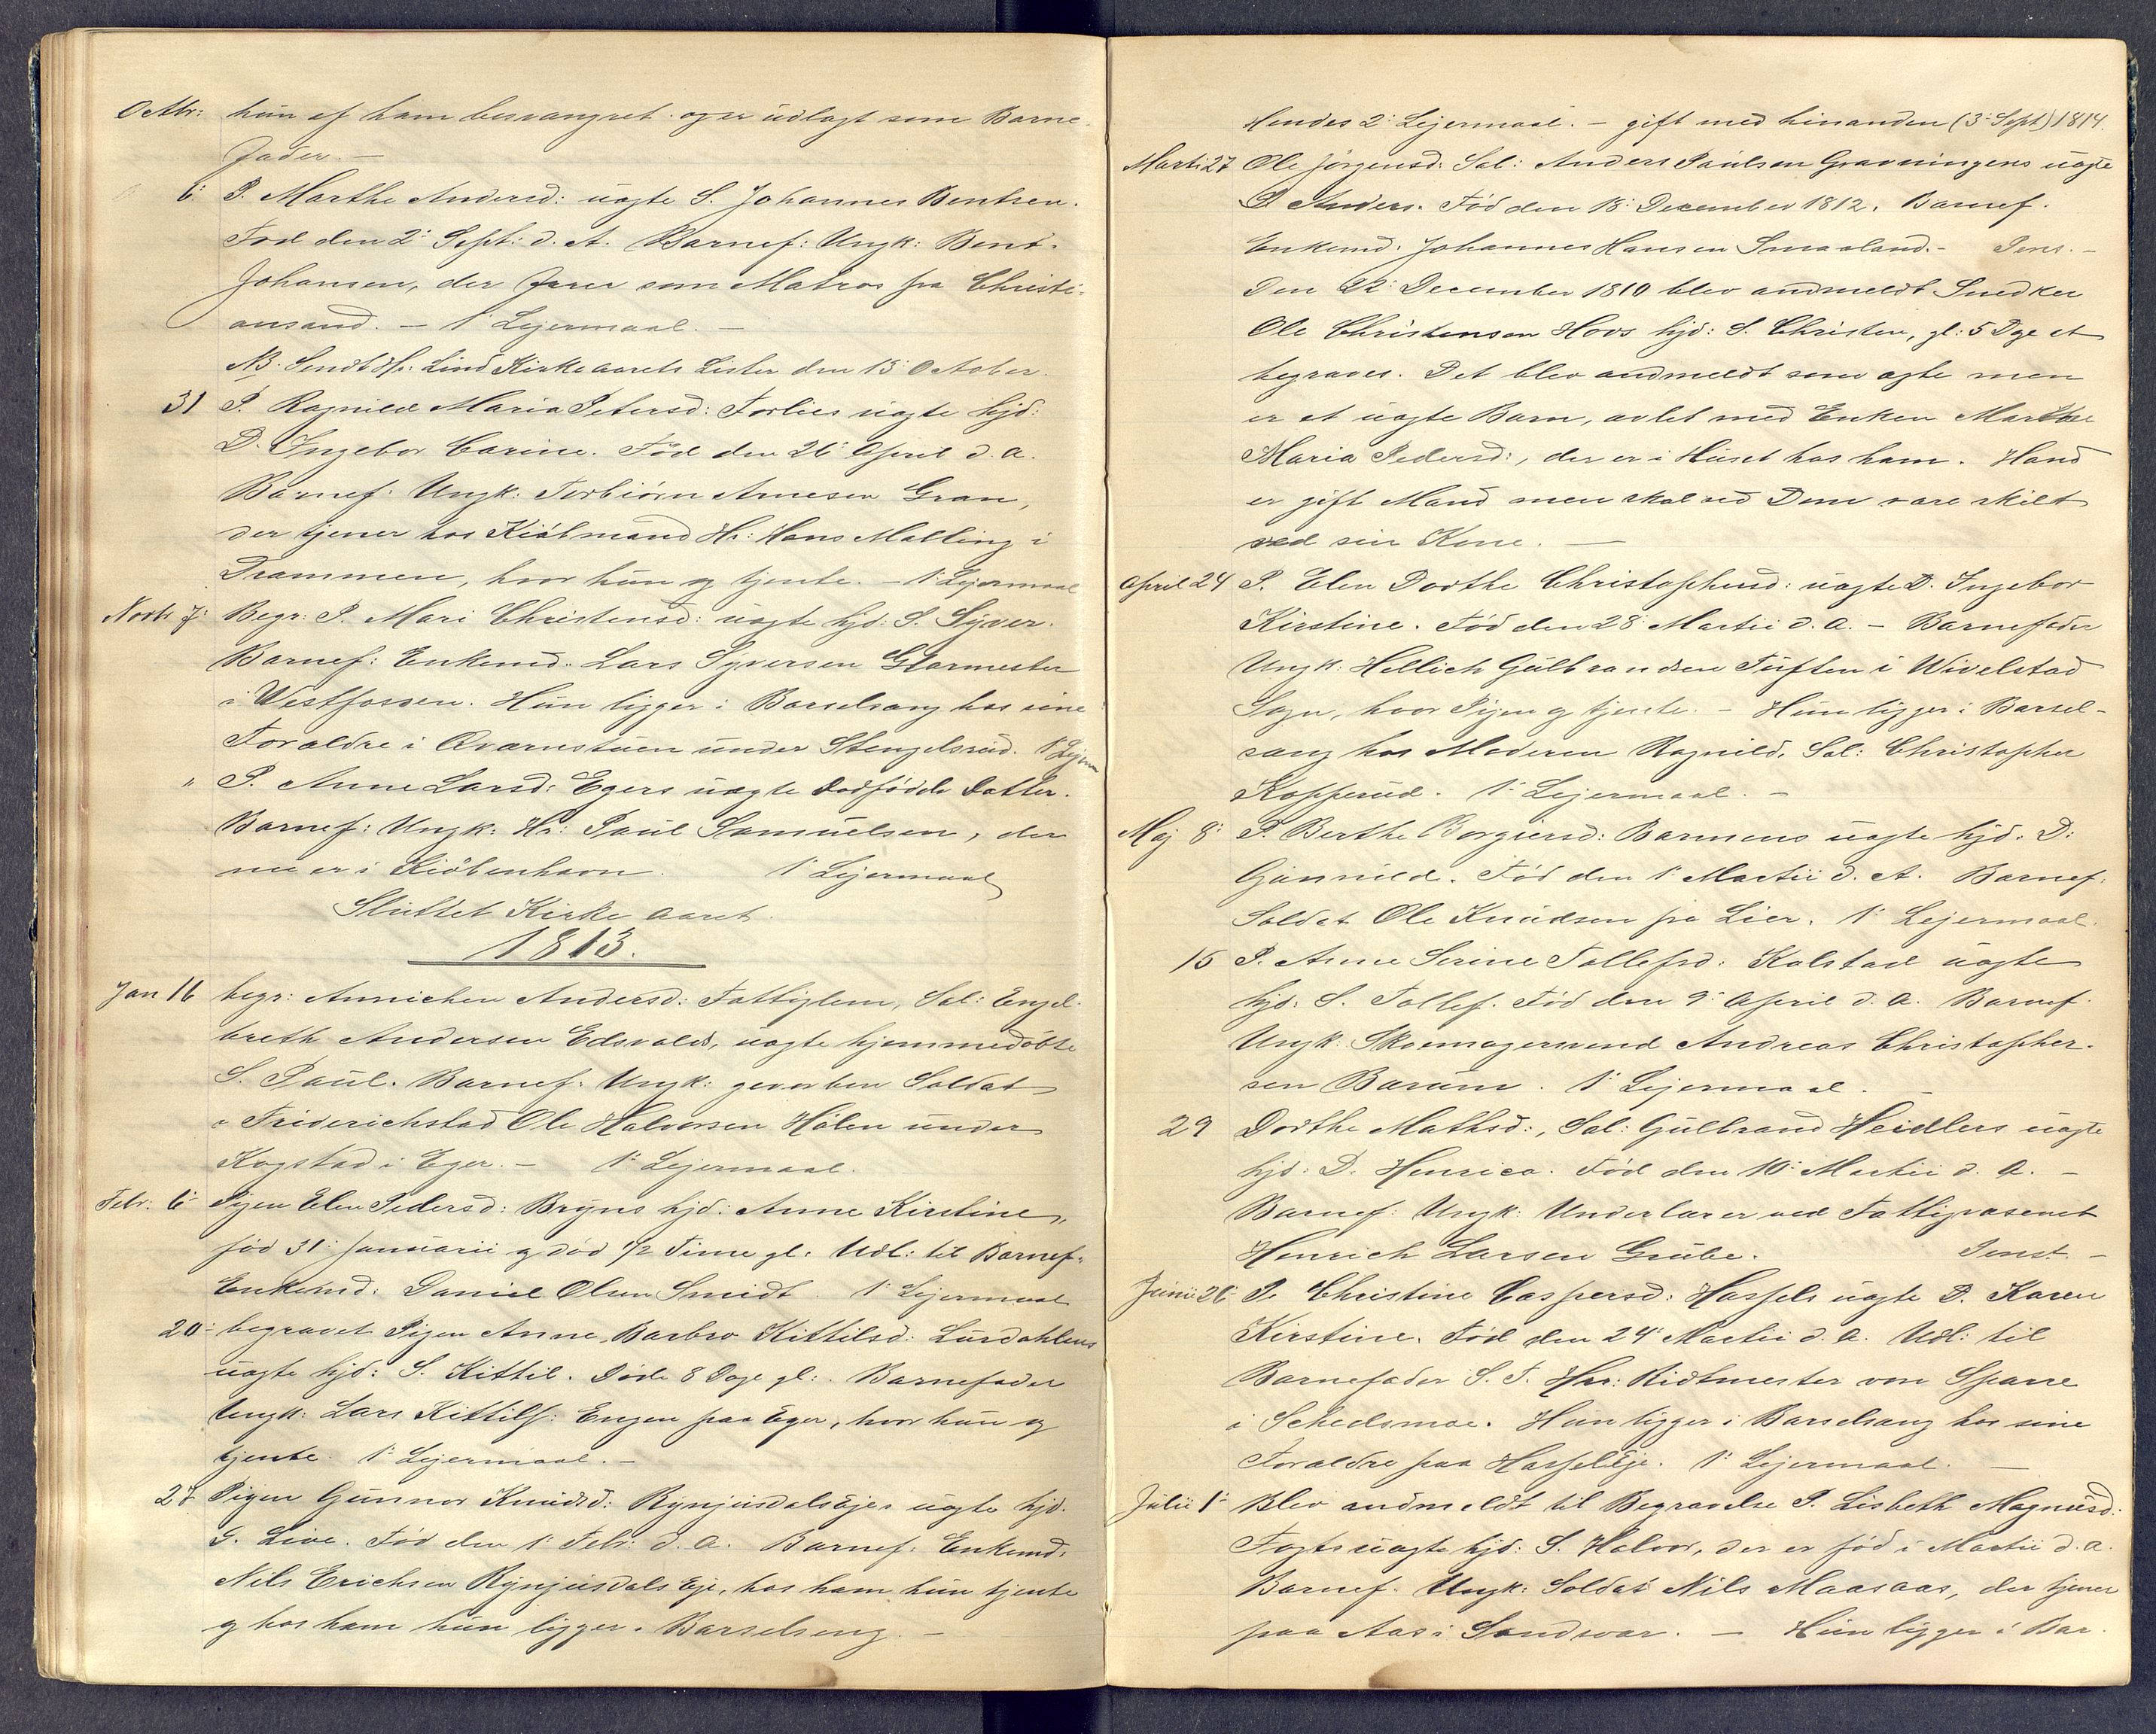 Octbr: hun af ham besvangret og er udlagt som Barne-
fader. —
6: P. Marthe Andersd: uægte S. Johannes Bentsen.
Fød den 2: Sept: d. A. Barnef: Ungk: Bent
Johansen, der farer som Matros fra Christi-
ansand. — 1: Lejermaal. —
NB. Sendt Hr: Lind Kirkeaarets Lister den 13: October.
31 P. Ragnild Maria Petersd: Forlies uægte hjd:
D. Ingebor Carine. Fød den 26: April d. a.
Barnef: Ungk: Torbiörn Arnesen Gran,
der tjener hos Kiöbmand Hr: Hans Malling i
Drammen, hvor hun og tjente. — 1: Lejermaal
Novb: 7: Begr: P. Mari Christensd: uægte hjd: S. Syver.
Barnef: Enkemd: Lars Syversen Glarmester
i Westfossen. Hun ligger i Barselsæng hos sine
Forældre i Qvarnstuen under Stengelsrud. 1: Lejerm
" P. Anne Larsd: Egers uægte dødfödde Datter.
Barnef: Ungk: Hr: Paul Samuelsen, der
nu er i Kiöbenhavn. 1: Lejermaal
Sluttet Kirkeaaret.
1813.
Jan 16 begr: Annichen Andersd: Fattiglem, Sal: Engel-
breth Andersen Edsvolds, uægte hjemmedöbte
S. Paul. Barnef: Ungk: gevorben Soldat
i Friderichstad Ole Halvorsen Hölen under
Kogstad i Eger. — 1: Lejermaal.
Febr: 6: Pigen Elen Pedersd: Bryns hjd: Anne Kirstine,
fød 31: Januarii og död 1/2 Time gl: Udl: til Barnef:
Enkemd: Daniel Olsen Smidt. 1: Lejermaal
20: begravet Pigen Anne Barbro Kittilsd: Lurdahlens
uægte hjd: S. Kittil. Döde 8 Dage gl:. Barnefader
Ungk: Lars Kittilss: Engen paa Eger, hvor hun og
tjente. 1: Lejermaal. —
27 Pigen Gunnor Knudsd: Rynjusdals Ejes uægte hjd.
G. Live. Fød den 1: Febr: d. a. Barnef: Enkemd:
Nils Erichsen Rynjusdals Eje, hos ham hun tjente
og hos ham hun ligger i Barselseng. —
Hendes 2: Lejermaal. — gift med hinanden (3: Sept) 1814.
Marti 27 Ole Jörgensd: Sal: Anders Paulsen Gravningens uægte
S. Anders. Fød den 18: December 1812. Barnef.
Enkemd: Johannes Hansen Smaaland. —
Den 22: December 1810 blev andmeldt Snedker
Ole Christensen Hovs hjd: S. Christen, gl: 5 Dge at
begraves. Det blev andmeldt som ægte men
er et uægte Barn, avlet med Enken Marthe
Maria Pedersd:, der er i Huset hos ham. Hand
er gift Mand men skal ved Dom være skilt
ved sin Kone. —
April 24 P. Elen Dorthe Christophersd: uægte D. Ingebor
Kirstine. Fød den 28: Martii d. a. — Barnefader
Ungk: Hellich Gulbrandsen Tuften i Wivelstad
Sogn, hvor Pigen og tjente. — Hun ligger i Barsel-
sæng hos Moderen Ragnild, Sal: Christopher
Kopperud. 1: Lejermaal. —
Maj 8: P. Berthe Borgiersd: Barmens uægte hjd: D:
Gunnild. Fød den 1: Martii d. A. Barnef:
Soldat Ole Knudsen fra Lier. 1: Lejermaal.
15 P. Anne Serine Tollefsd: Kolstad uægte
hjd: S. Tollef. Fød den 9: April d. a. Barnef.
Ungk: Skomagersvend Andreas Christopher-
sen Barum. 1: Lejermaal. —
29 Dorthe Mathsd:, Sal: Gulbrand Heidlers uægte
hjd: D. Henrica. Fød den 10: Martii d. a. —
Barnef: Ungk: Underlærer ved Fattigvæsenet
Henrich Larsen Grube.
Junii 26 P. Christine Caspersd: Hassels uægte D. Karen
Kirstine. Fød den 24: Martii d. a. Udl: til
Barnefader S. T. Hrr: Ridtmester von Sparre
i Schedsmoe. Hun ligger i Barselsæng hos sine
Forældre paa HasselEje. 1: Lejermaal. —
Julii 1: Blev andmeldt til Begravelse P. Lisbeth Magnusd:
Fogts uægte hjd: S. Halvor, der er fød i Martii d. a.
Barnef. Ungk: Soldat Nils Maasaas, der tjener
paa Aas i Sandsvær. — Hun ligger i Bar-